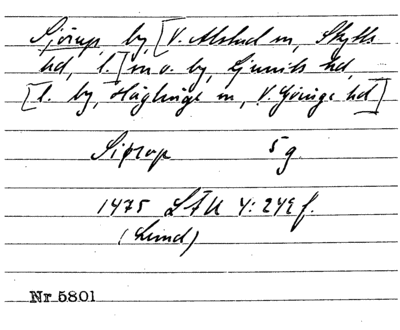 Sjörup, by, [V. Alstad sn, Skytts
hd, l.] sn o. by, Ljunits hd,
[l. by, Häglinge sn, V. Göinge hd]
Siþrop 5 g.
1475 LÄU 4: 242 f.
(Lund)
Nr 5801